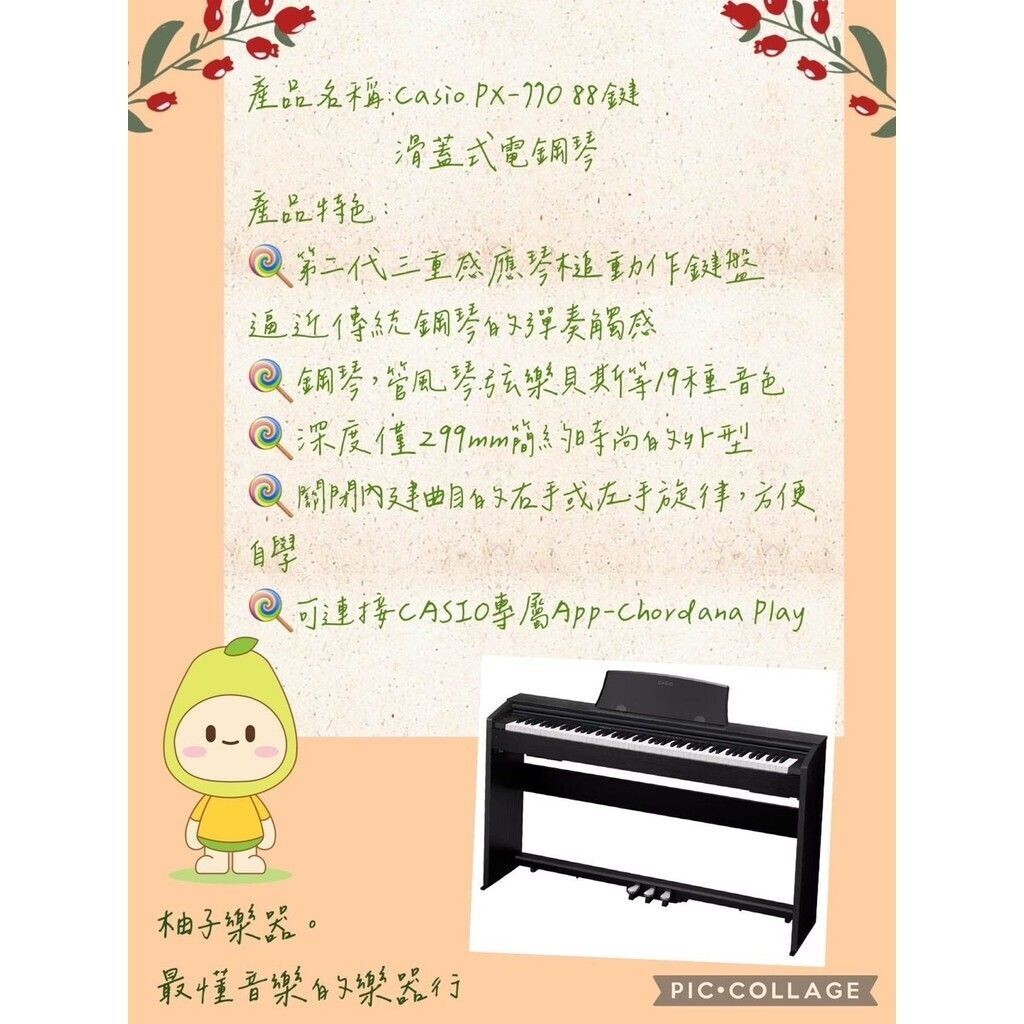 產品名稱:Casio PX-770 88鍵
滑蓋式電鋼琴
產品特色:
第二代三重感應琴槌動作鍵盤
逼近傳統鋼琴的彈奏觸感
鋼琴,管風琴弦樂貝斯等19種音色
深度僅299mm簡約時尚的外型
關閉內建曲目的右手或左手旋律,方便
自學
可連接CASIO專屬App-Chordana Play
CASIO
柚子樂器。
最懂音樂的樂器行
PIC•COLLAGE